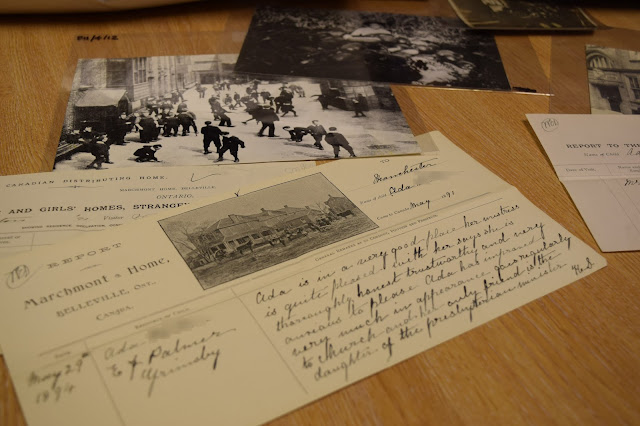 PH/6/12
CANADIAN DISTRIBUTING HOME,
MARCHMONT HOME, BELLEVILLE,
ONTARIO.
AND GIRLS' HOMES, STRANGEW
Visitor
REPORT
Marchmont Home,
BELLEVILLE, Ont.
CANADA
TO
Manchester
Ada
May 191
DATE
May 29th
1894
Ada
E A Palmer
Grimsby
Ada is in a very good place her mistress
is quite pleased with her says she is
thoroughly honest trustworthy and very
anxious to please Ada has improved
very much in appearance goes regularly
to church and her only friend is the
daughter of the presbyterian minister
REPORT TO THE
Name of Child